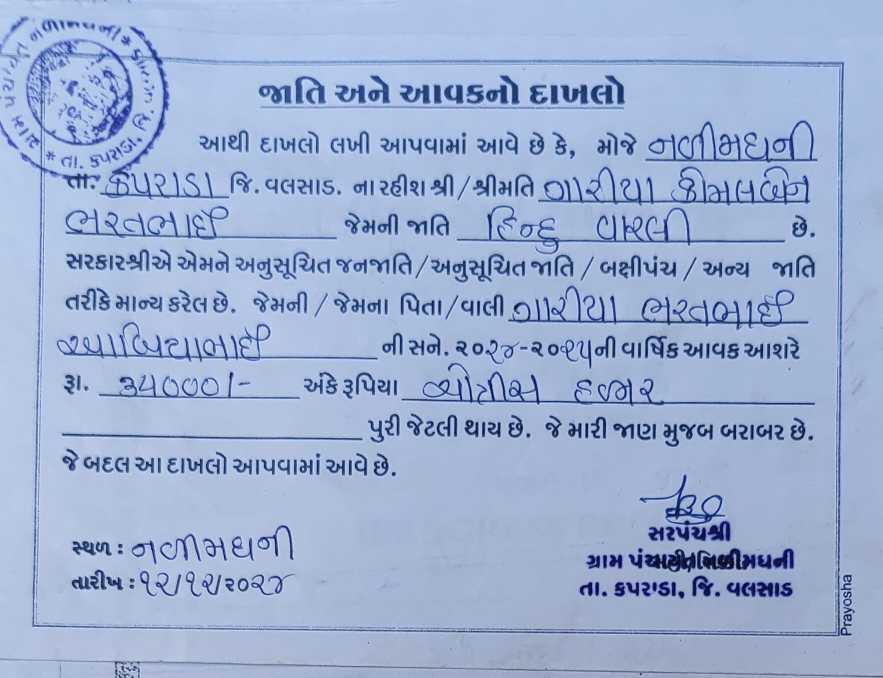 ગ્રામ પંચાયત નળીમધની * તા. કપરાડા, જિ. વલસાડ *
જાતિ અને આવકનો દાખલો
આથી દાખલો લખી આપવામાં આવે છે કે, મોજે નળીમધની
તા. કપરાડા જિ. વલસાડ. ના રહીશ શ્રી/શ્રીમતિ ગારીયા કોમલબેન
ભરતભાઈ જેમની જાતિ હિન્દુ વારલી છે.
સરકારશ્રીએ એમને અનુસૂચિત જનજાતિ/અનુસૂચિત જાતિ / બક્ષીપંચ / અન્ય જાતિ
તરીકે માન્ય કરેલ છે. જેમની / જેમના પિતા/વાલી ગારીયા ભરતભાઈ
ની સને. ૨૦૨૪-૨૦૨૫ ની વાર્ષિક આવક આશરે
રૂા. ૩૫૦૦૦/- અંકે રૂપિયા હજાર
પુરી જેટલી થાય છે. જે મારી જાણ મુજબ બરાબર છે.
જે બદલ આ દાખલો આપવામાં આવે છે.
સ્થળ : નળીમધની
તારીખ : ૧૨/૧૨/૨૦૨૪
સરપંચશ્રી
ગ્રામ પંચાયત નળીમધની
તા. કપરાડા, જિ. વલસાડ
Prayosha